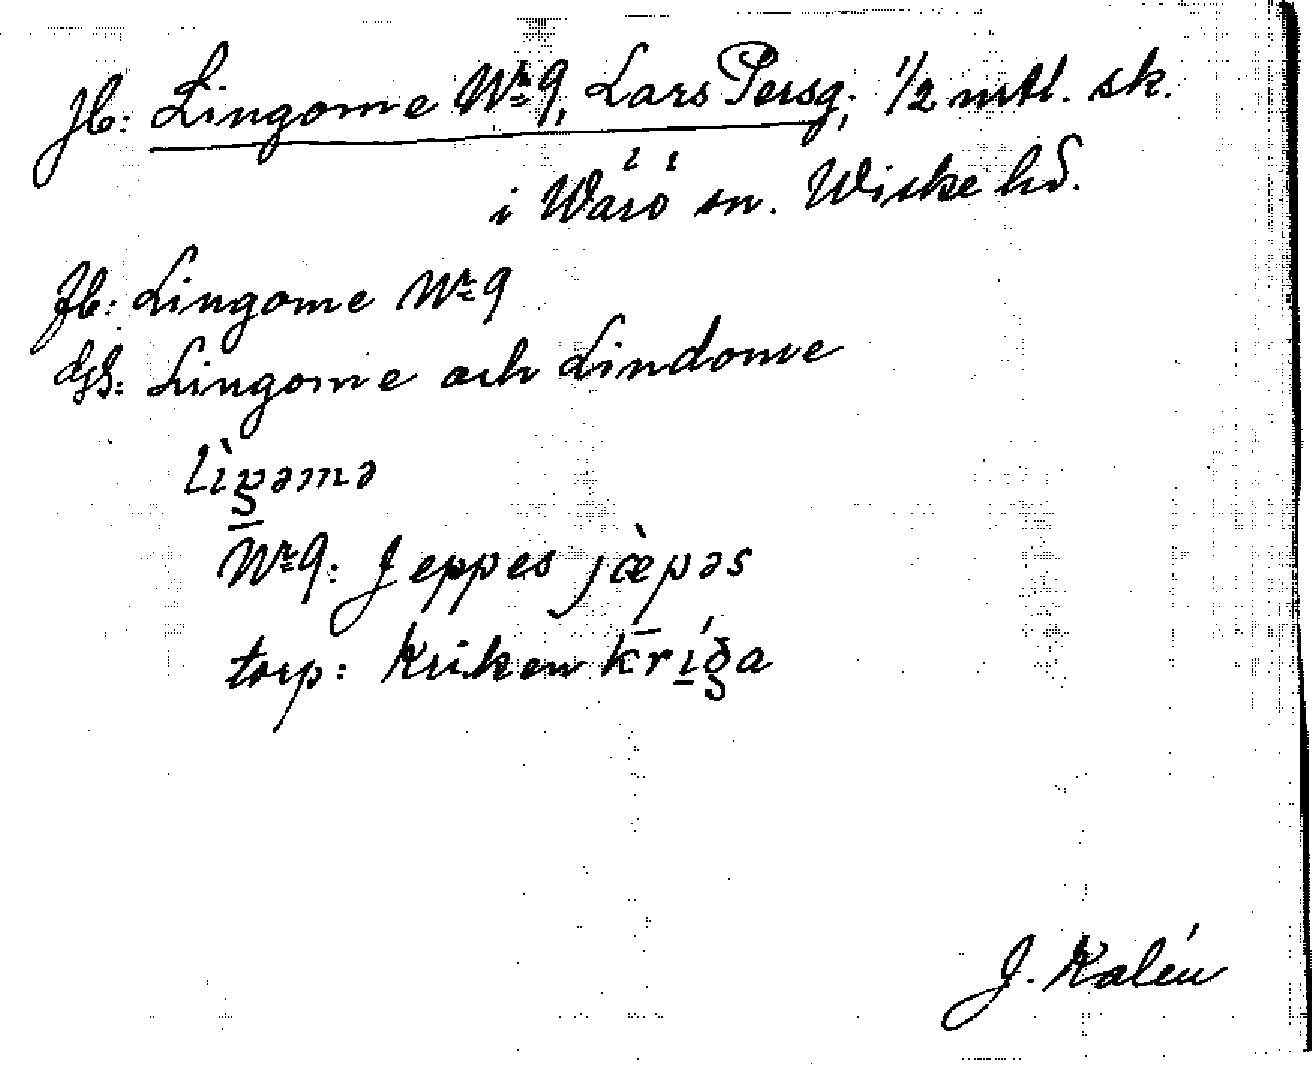 Jb: Lingome Nr 9, Lars Persg; 1/2 mtl. sk.
i Wärö sn. Wiske hd.
Jb: Lingome Nr 9
GS: Lingome och Lindome
Nr 9: Jeppes jæ̀pəs
torp: Kriken
J. Kalén